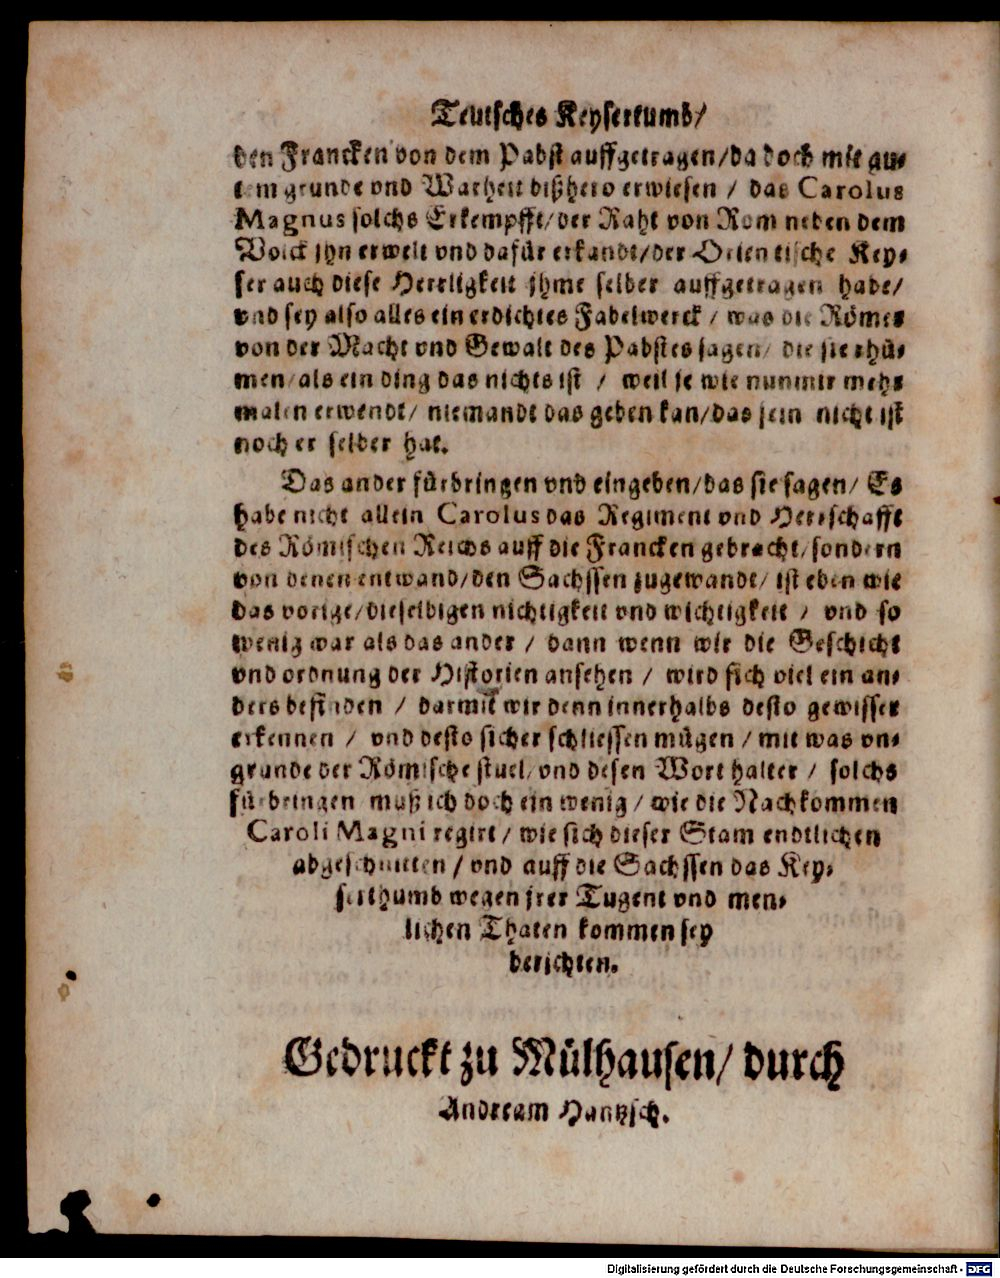 Teutsches Keysertumb/
den Francken von dem Pabst auffgetragen/da doch mit gu-
tem grunde vnd Warheit bißhero erwiesen / das Carolus
Magnus solchs Erkempfft/der Raht von Rom neben dem
Volck jhn erwelt vnd dafür erkandt/der Orientische Key-
ser auch diese Herrligkeit jhme selber auffgetragen habe/
vnd sey also alles ein erdichtes Fabelwerck / was die Römer
von der Macht vnd Gewalt des Pabstes sagen/ die sie rhü-
men/als ein ding das nichts ist / weil je wie nunmir mehr
malen erwendt/ niemandt das geben kan/das sein nicht ist
noch er selber hat.
Das ander fürbringen vnd eingeben/das sie sagen/ Es
habe nicht allein Carolus das Regiment vnd Herrschafft
des Römischen Reichs auff die Francken gebracht/sondern
von denen entwand/den Sachssen zugewandt/ ist eben wie
das vorige/dieselbigen nichtigkeit vnd wichtigkeit / vnd so
wenig war als das ander / dann wenn wir die Geschicht
vnd ordnung der Historien ansehen / wird sich viel ein an-
ders befinden / darmit wir denn innerhalbs desto gewisser
erkennen / vnd desto sicher schliessen mügen / mit was vn-
grunde der Römische stuel/vnd desen Wort halter / solchs
fürbringen muß ich doch ein wenig / wie die Nachkommen
Caroli Magni regirt / wie sich dieser Stam endtlichen
abgeschnitten / vnd auff die Sachssen das Key-
serthumb wegen jrer Tugent vnd men-
lichen Thaten kommen sey
berichten.
Gedruckt zu Mülhausen/ durch
Andream Hantzsch.
Digitalisierung gefördert durch die Deutsche Forschungsgemeinschaft - DFG